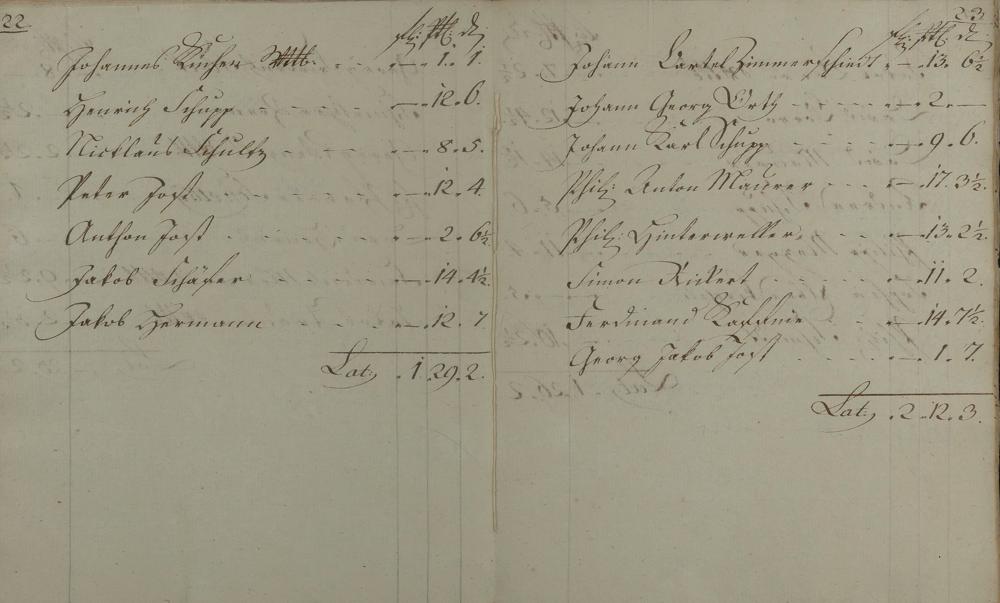 22
fl: alb: d:
Johannes Kucher Wttb: - - - 1. 1.
Henrich Schupp - - - 12. 6.
Nicklaus Schultz - - - 8. 5.
Peter Jost - - - 12. 4.
Anthon Jost - - - 2. 6½
Jakob Schäfer - - - 14. 4½.
Jakob Hermann - - - 12. 7
Lat: 1. 29. 2.
23
fl: alb: d:
Johann Cartel Zimmerschiedt - 13. 6½
Johann Georg Orth - - - 2. —
Johann Karl Schupp - - - 9. 6.
Phil: Anton Maurer - - - 17. 3½
Phil: Hinterweller - - - 13. 2½.
Simon Rickert - - - 11. 2.
Ferdinand - - - 14. 7½.
Georg Jakob Jost - - - 1. 7.
Lat: 2. 12. 3.